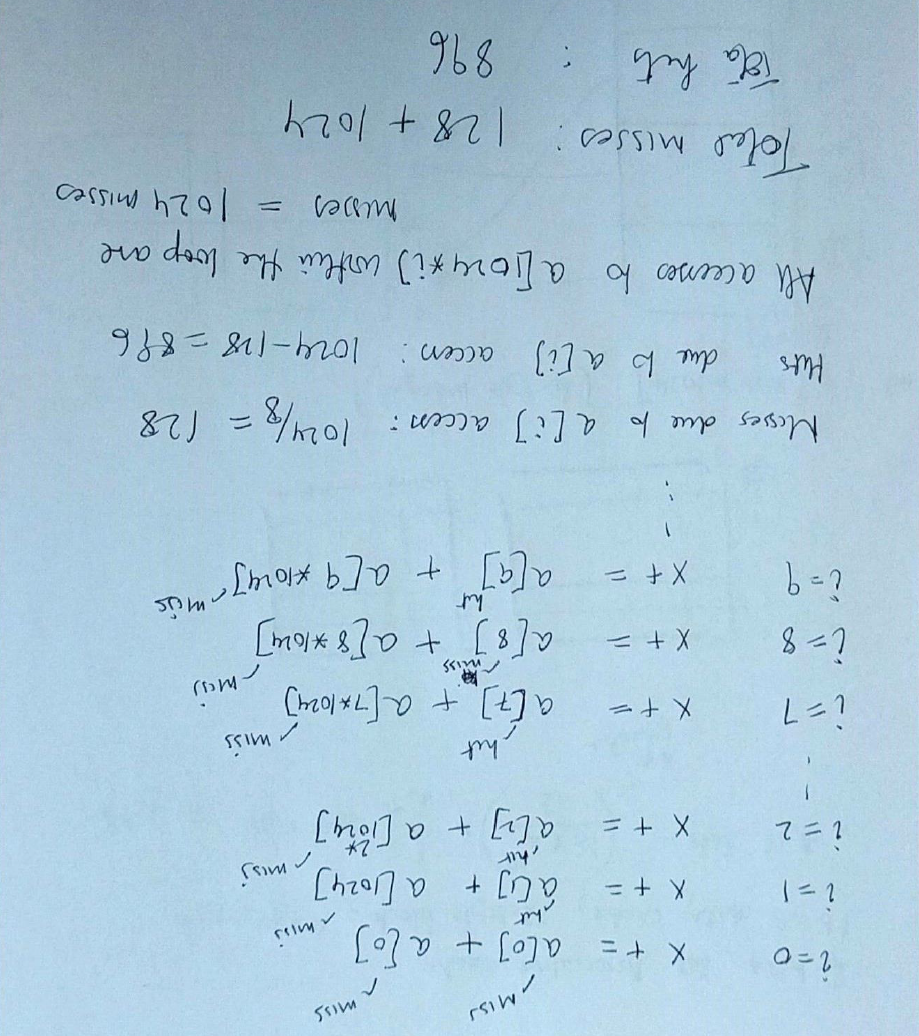 Miss miss
i=0 x += a[0] + a[0]
hit miss
i=1 x += a[1] + a[1024]
hit miss
i=2 x += a[2] + a[2*1024]
hit miss
i=7 x += a[7] + a[7*1024]
miss miss
i=8 x += a[8] + a[8*1024]
hit
i=9 x += a[9] + a[9*1024] miss
Misses due to a[i] access: 1024/8 = 128
Hits due to a[i] access: 1024-128 = 896
All accesses to a[1024*i] within the loop are
misses = 1024 misses
Total misses: 128 + 1024
Total hits : 896